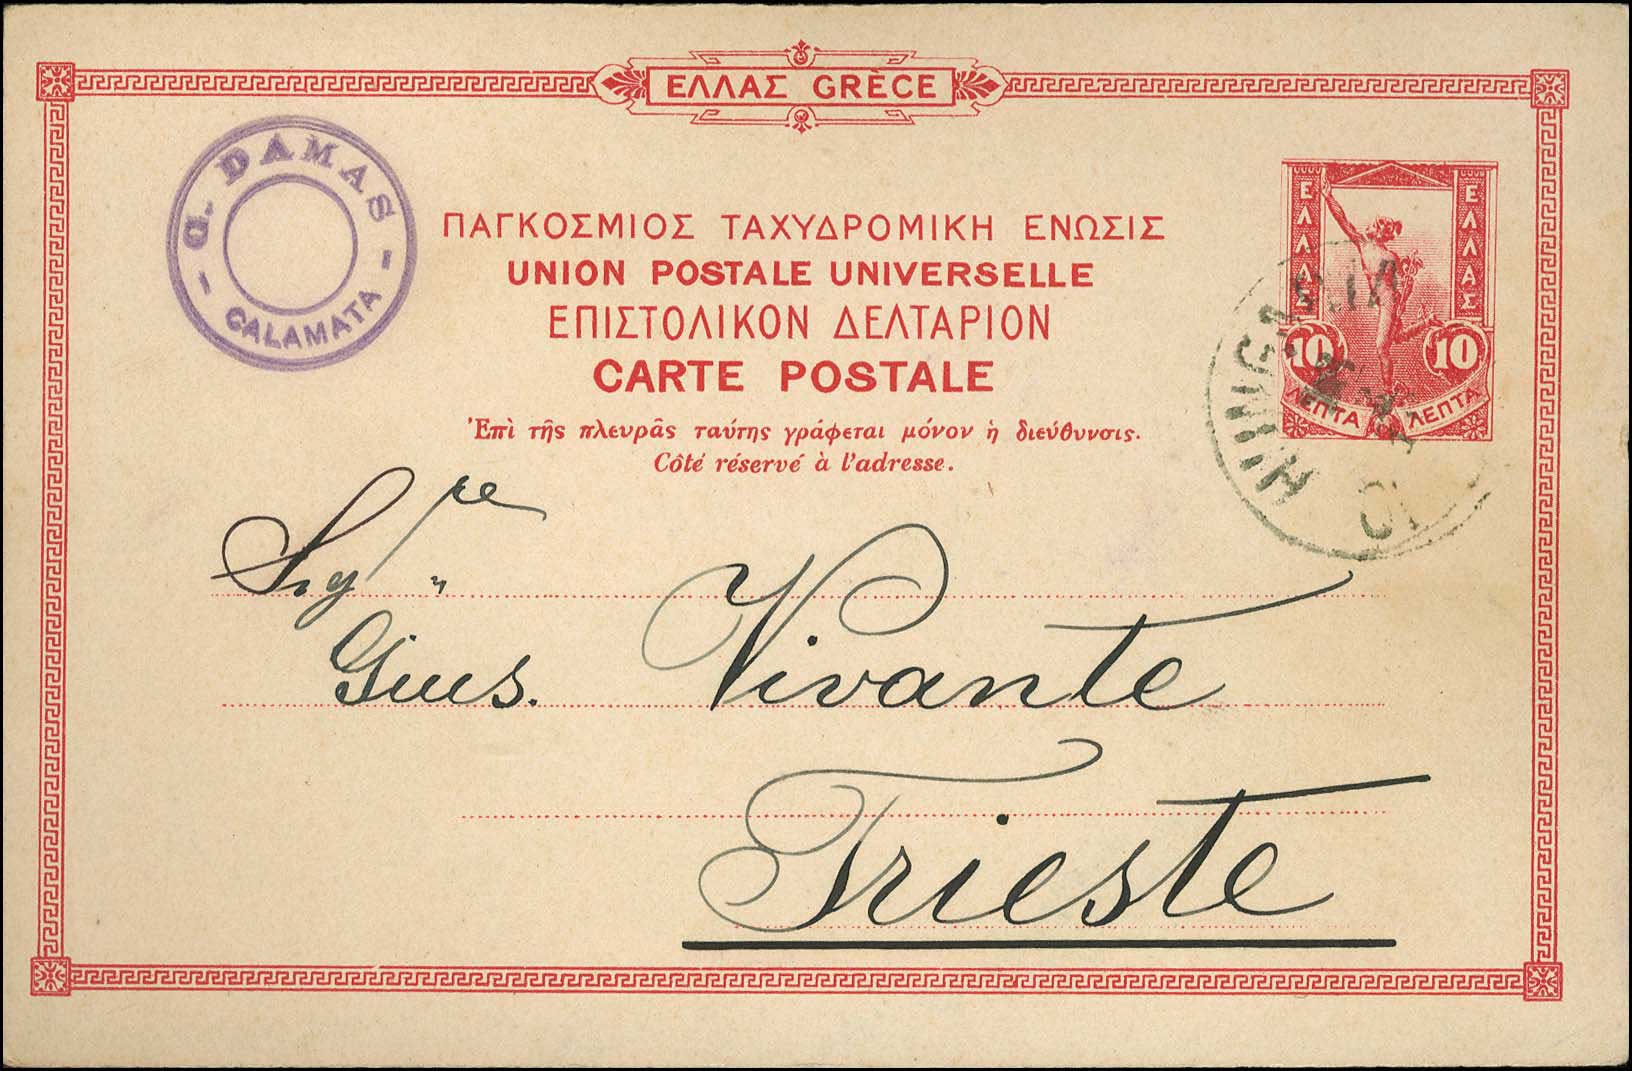 ΕΛΛΑΣ GRÈCE
G. DAMAS
CALAMATA
ΕΛΛΑΣ
ΕΛΛΑΣ
10 10
ΛΕΠΤΑ ΛΕΠΤΑ
ΠΑΓΚΟΣΜΙΟΣ ΤΑΧΥΔΡΟΜΙΚΗ ΕΝΩΣΙΣ
UNION POSTALE UNIVERSELLE
ΕΠΙΣΤΟΛΙΚΟΝ ΔΕΛΤΑΡΙΟΝ
CARTE POSTALE
Ἐπὶ τῆς πλευρᾶς ταύτης γράφεται μόνον ἡ διεύθυνσις.
Côté réservé à l'adresse.
Sigre
Gius. Vivante
Trieste